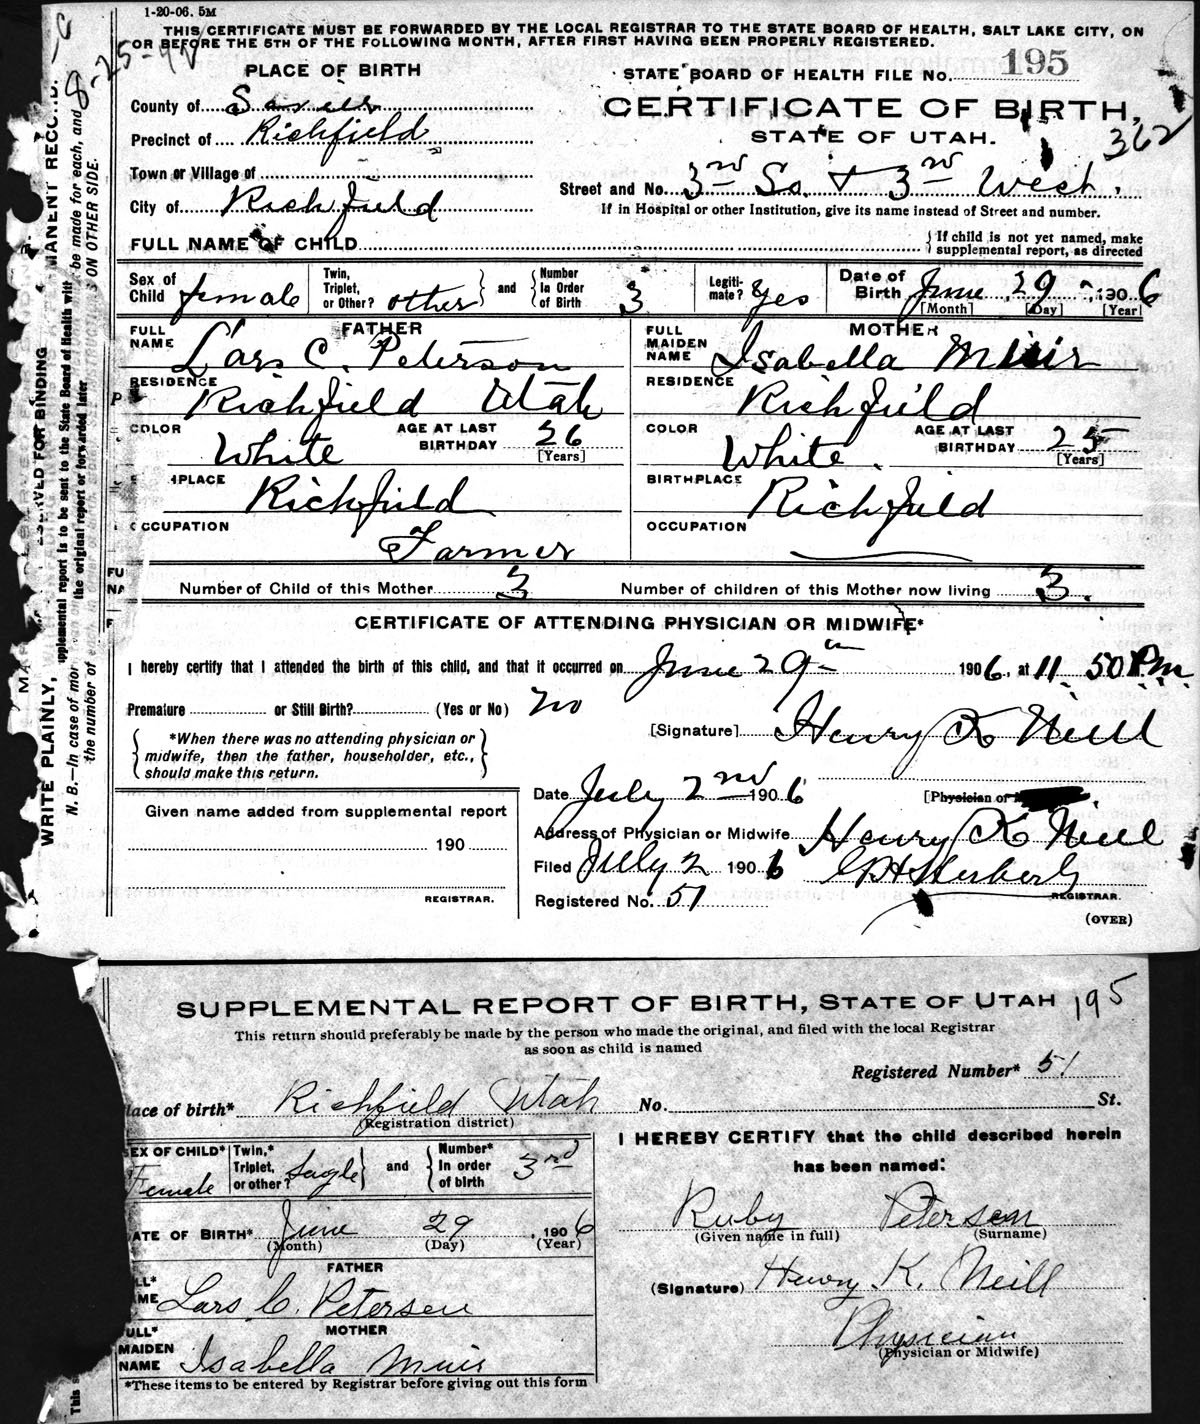 1-20-06. 5M
THIS CERTIFICATE MUST BE FORWARDED BY THE LOCAL REGISTRAR TO THE STATE BOARD OF HEALTH, SALT LAKE CITY, ON
OR BEFORE THE 5TH OF THE FOLLOWING MONTH, AFTER FIRST HAVING BEEN PROPERLY REGISTERED.
8-25-42
PLACE OF BIRTH
STATE BOARD OF HEALTH FILE No. 195
County of Sevier
CERTIFICATE OF BIRTH,
Precinct of Richfield
STATE OF UTAH.
362
Town or Village of
Street and No. 3rd So. + 3rd West.
City of Richfield
If in Hospital or other Institution, give its name instead of Street and number.
FULL NAME OF CHILD
{If child is not yet named, make supplemental report, as directed
Sex of Child female Twin, Triplet, or Other? other } and { Number In Order of Birth 3 Legitimate? Yes Date of Birth June 29, 1906
[Month] [Day] [Year]
FATHER MOTHER
FULL NAME Lars C. Peterson FULL MAIDEN NAME Isabella Muir
RESIDENCE Richfield Utah RESIDENCE Richfield
COLOR White AGE AT LAST BIRTHDAY 26 [Years] COLOR White. AGE AT LAST BIRTHDAY 25 [Years]
PLACE Richfield BIRTHPLACE Richfield
OCCUPATION Farmer OCCUPATION
Number of Child of this Mother 3 Number of children of this Mother now living 3.
CERTIFICATE OF ATTENDING PHYSICIAN OR MIDWIFE*
I hereby certify that I attended the birth of this child, and that it occurred on June 29th 1906, at 11.50 P.m.
Premature or Still Birth? (Yes or No) No
[Signature] Henry K Neill
{*When there was no attending physician or midwife, then the father, householder, etc., should make this return.}
Date July 2nd 1906 [Physician or
Given name added from supplemental report
Address of Physician or Midwife Henry K Neill
190
Filed July 2 1906
REGISTRAR.
Registered No. 51
REGISTRAR.
(OVER)
WRITE PLAINLY,
MANENT RECORD
SERVED FOR BINDING
N. B.—In case of mor
be made for each, and
the number of
ON OTHER SIDE.
pplemental report is to be sent to the State Board of Health with
the original report or forwarded later.
SUPPLEMENTAL REPORT OF BIRTH, STATE OF UTAH 195
This return should preferably be made by the person who made the original, and filed with the local Registrar
as soon as child is named
Registered Number* 51
lace of birth* Richfield Utah No. St.
(Registration district)
I HEREBY CERTIFY that the child described herein
has been named:
SEX OF CHILD* Female Twin,* Triplet, or other? Single } and { Number* In order of birth 3rd
Ruby Petersen
(Given name in full) (Surname)
ATE OF BIRTH* June 29, 1906
(Month) (Day) (Year)
(Signature) Henry K. Neill
FATHER
Lars C. Petersen
Physician
(Physician or Midwife)
MOTHER
ULL* MAIDEN NAME Isabella Muir
*These items to be entered by Registrar before giving out this form
This s